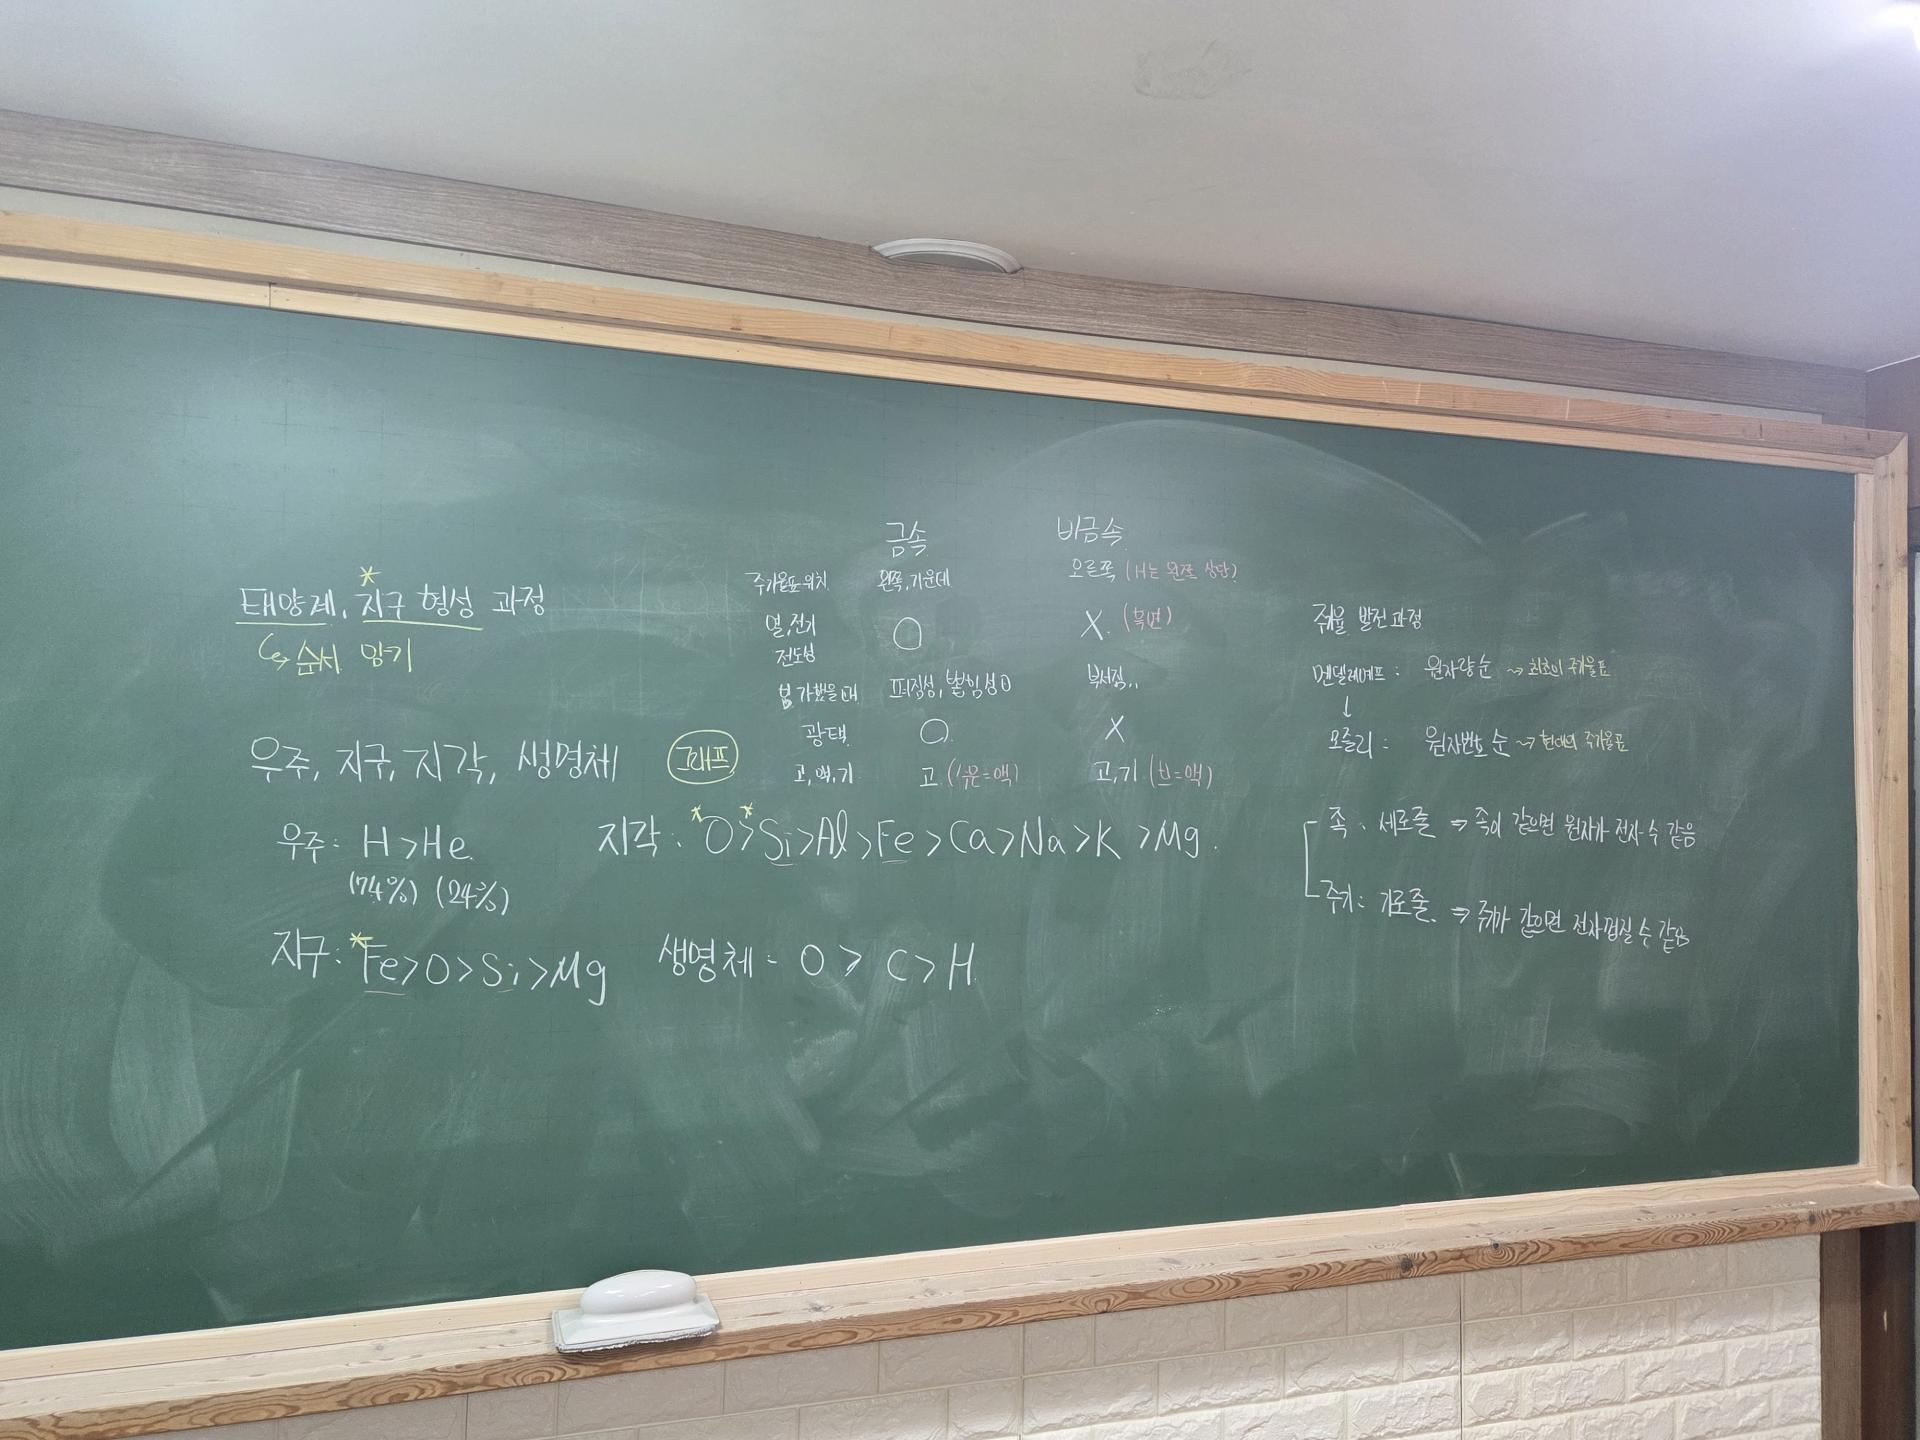 태양계, *지구 형성 과정
↳ 순서 암기
우주, 지구, 지각, 생명체 그래프
우주: H > He
(74%) (24%)
지구: *Fe>O>Si>Mg
금속 비금속
주기율표 위치 왼쪽, 가운데 오른쪽 (H는 왼쪽 상단)
열, 전기 전도성 O X (흑연)
힘 가했을 때 펴짐성, 뽑힘성 O 부서짐
광택 O X
고, 액, 기 고 (수은=액) 고, 기 (브=액)
지각: *O>*Si>Al>Fe>Ca>Na>K>Mg
생명체: O > C > H
주기율 발전 과정
멘델레예프: 원자량 순 ⇝ 최초의 주기율표
↓
모즐리: 원자번호 순 ⇝ 현대의 주기율표
족: 세로줄 ⇒ 족이 같으면 원자가 전자 수 같음
주기: 가로줄 ⇒ 주기가 같으면 전자껍질 수 같음